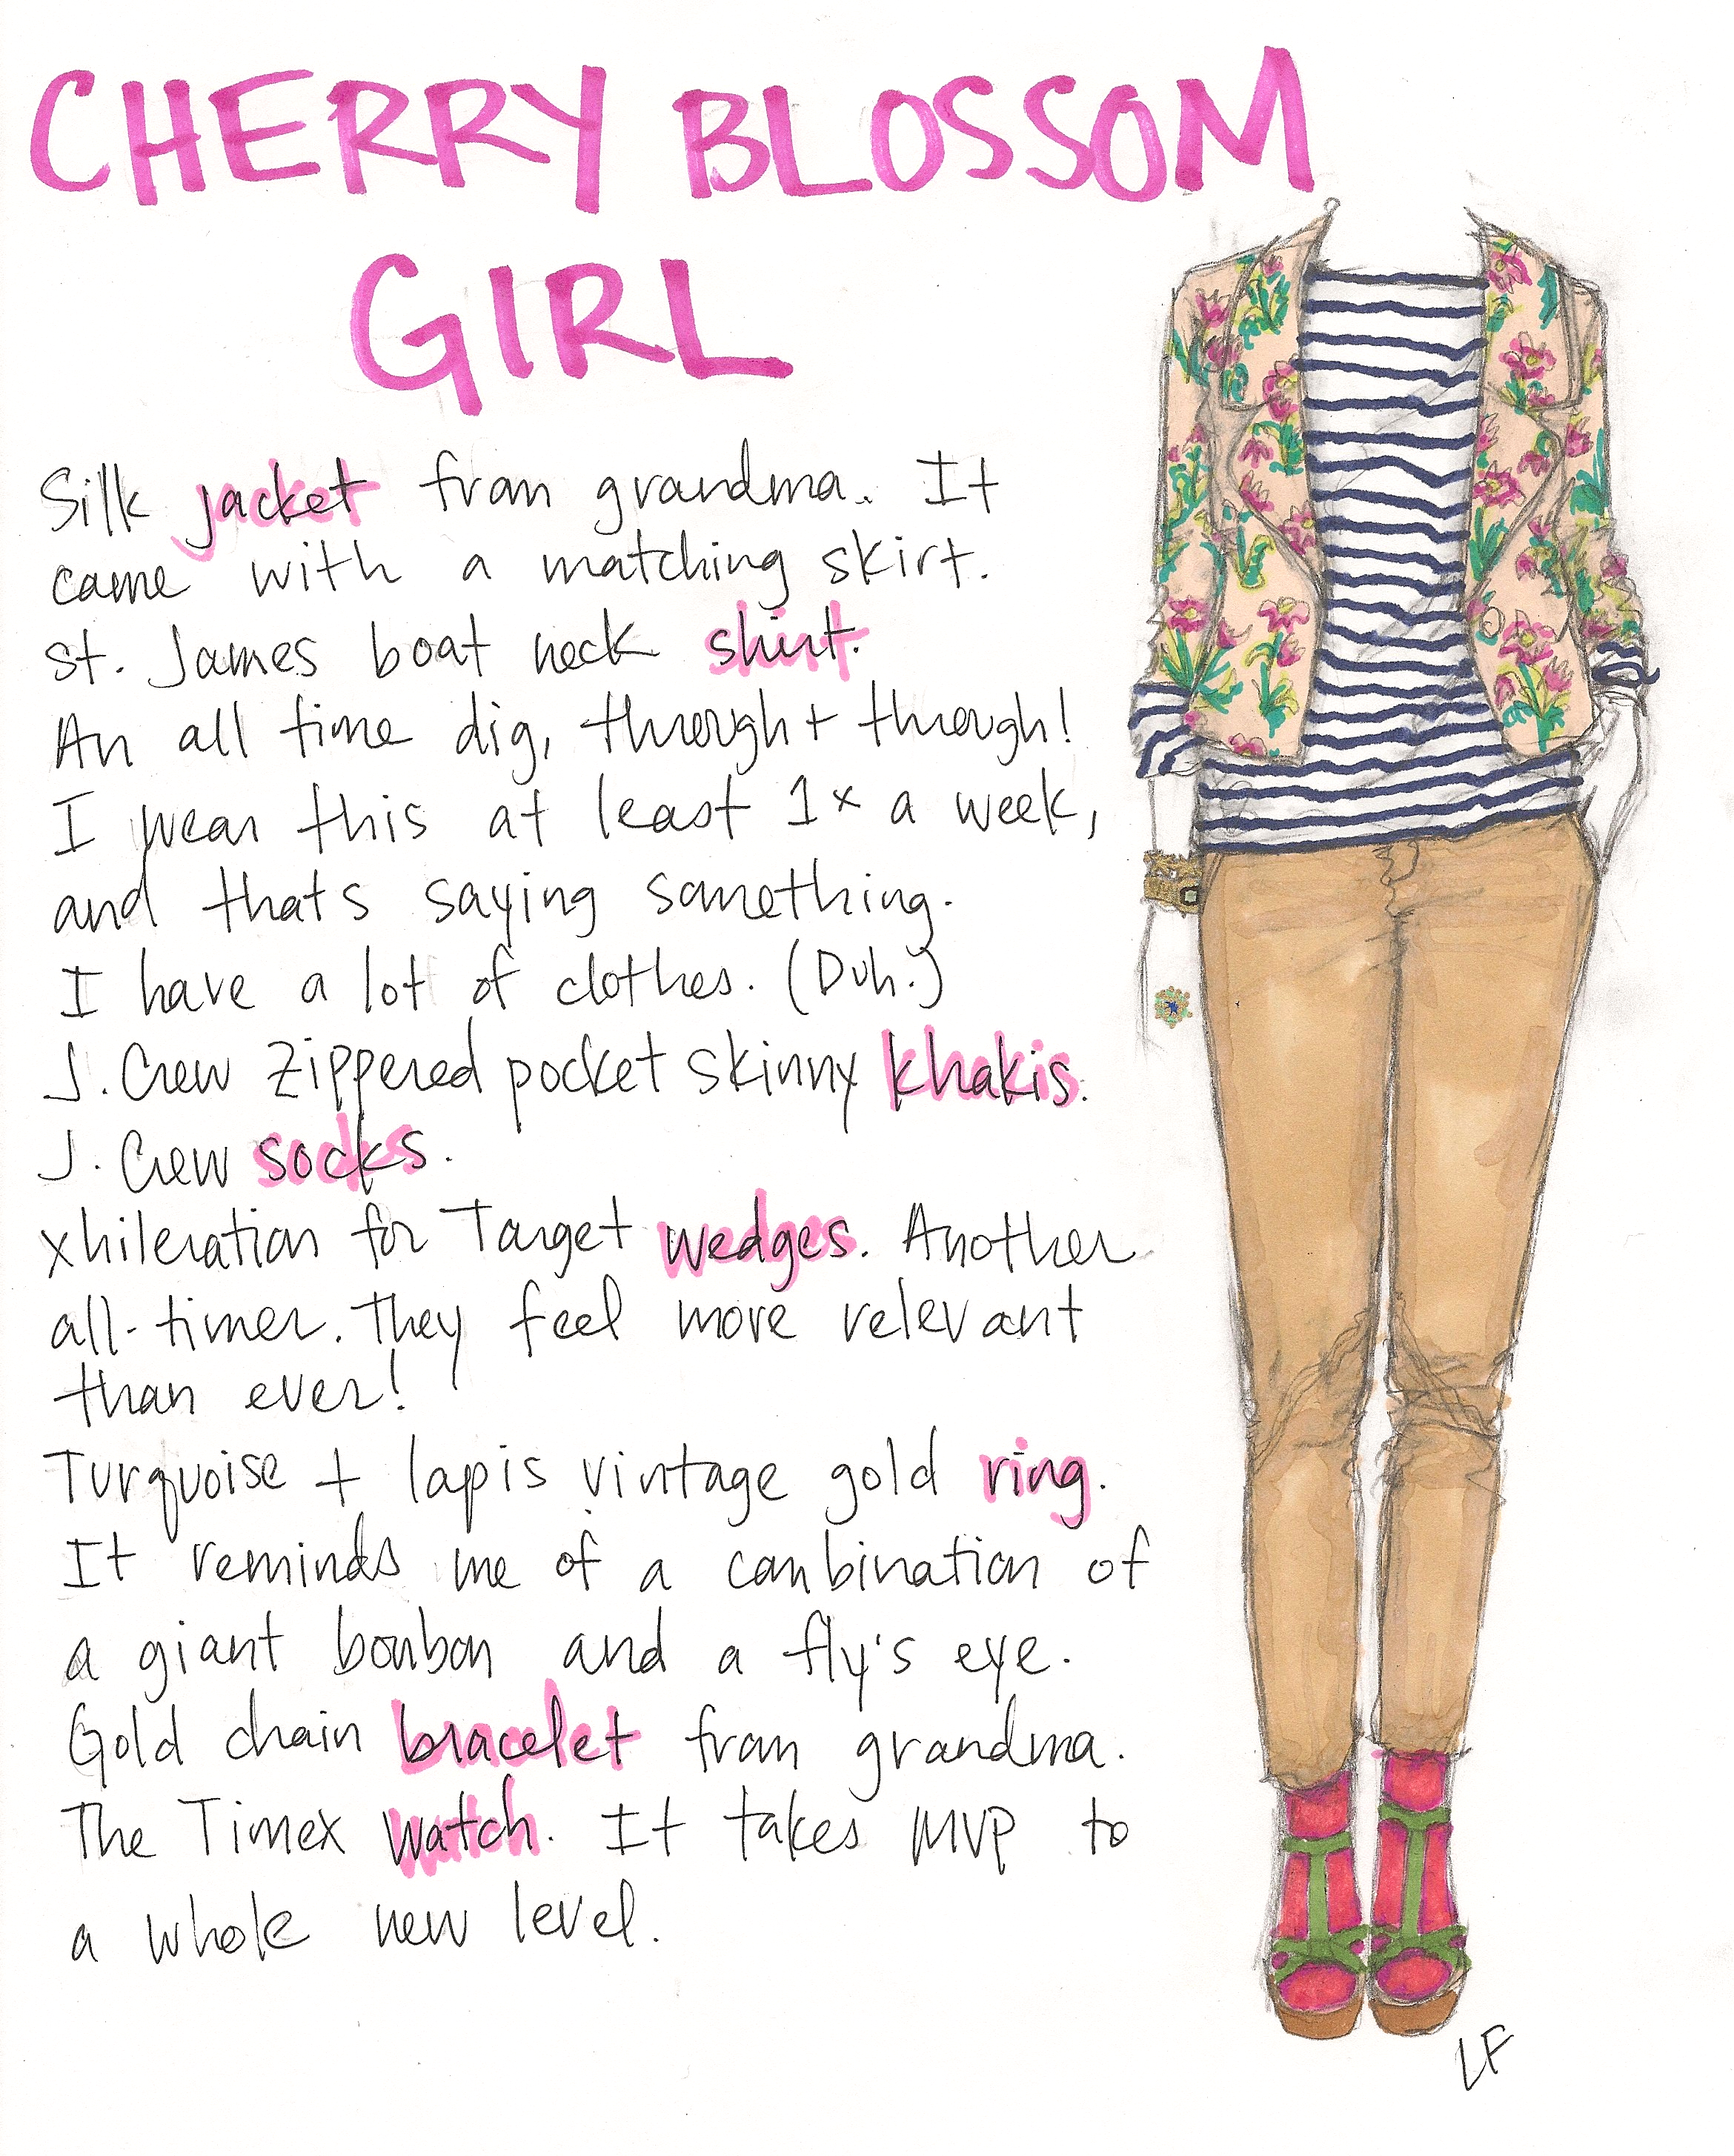 CHERRY BLOSSOM
GIRL
Silk jacket from grandma. It
came with a matching skirt.
St. James boat neck shirt.
An all time dig, through + through!
I wear this at least 1x a week,
and thats saying something.
I have a lot of clothes. (Duh.)
J. Crew zippered pocket skinny khakis.
J. Crew socks.
xhileration for Target wedges. Another
all-timer. They feel more relevant
than ever!
Turquoise + lapis vintage gold ring.
It reminds me of a combination of
a giant bonbon and a fly's eye.
Gold chain bracelet from grandma.
The Timex watch. It takes MVP to
a whole new level.
LF